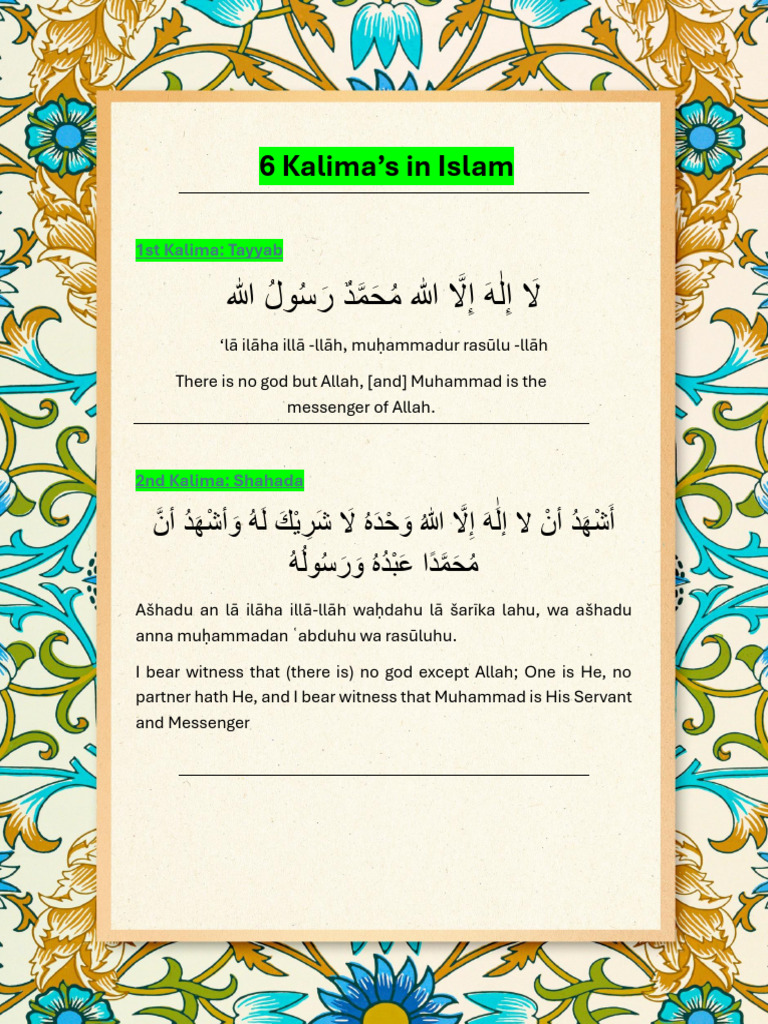 6 Kalima’s in Islam
1st Kalima: Tayyab
لَا إِلٰهَ إِلَّا الله مُحَمَّدٌ رَسُولُ الله
‘lā ilāha illā -llāh, muḥammadur rasūlu -llāh
There is no god but Allah, [and] Muhammad is the
messenger of Allah.
2nd Kalima: Shahada
أَشْهَدُ أنْ لا إلَٰهَ إِلَّا اللهُ وَحْدَهُ لَا شَرِيْكَ لَهُ وَأشْهَدُ أنَّ
مُحَمَّدًا عَبْدُهُ وَرَسُولُهُ
Ašhadu an lā ilāha illā-llāh waḥdahu lā šarīka lahu, wa ašhadu
anna muḥammadan ʿabduhu wa rasūluhu.
I bear witness that (there is) no god except Allah; One is He, no
partner hath He, and I bear witness that Muhammad is His Servant
and Messenger